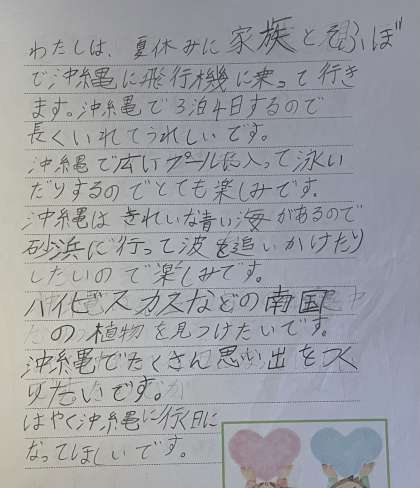 わたしは、夏休みに家族とそふぼ
で沖縄に飛行機に乗って行き
ます。沖縄で3泊4日するので
長くいれてうれしいです。
沖縄で広いプールに入って泳い
だりするのでとても楽しみです。
沖縄はきれいな青い海があるので
砂浜に行って波を追いかけたり
したいので楽しみです。
ハイビスカスなどの南国
の植物を見つけたいです。
沖縄でたくさん思い出をつく
りたいです。
はやく沖縄に行く日に
なってほしいです。